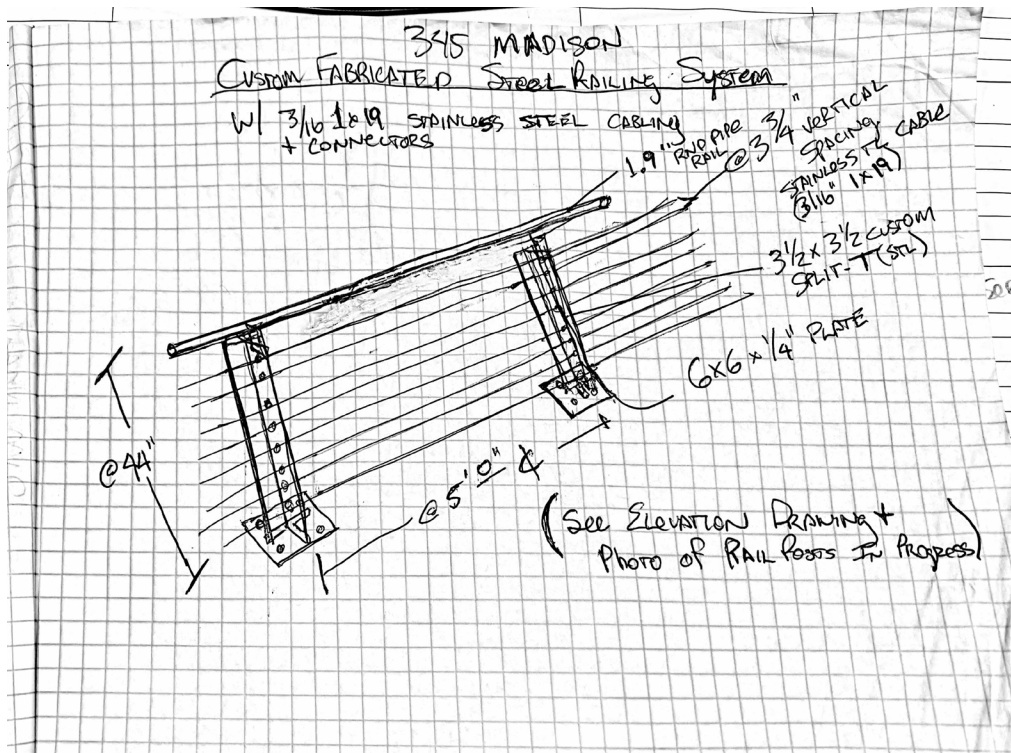 345 MADISON
CUSTOM FABRICATED STEEL RAILING SYSTEM
W/ 3/16 1x19 STAINLESS STEEL CABLING
+ CONNECTORS
1.9" RND PIPE
RAIL
@ 3 3/4" VERTICAL
SPACING
STAINLESS STL CABLE
(3/16" 1x19)
3 1/2 x 3 1/2 CUSTOM
SPLIT-T (STL)
6x6 x 1/4" PLATE
@ 44"
@ 5'0" ȼ
(SEE ELEVATION DRAWING +
PHOTO OF RAIL POSTS IN PROGRESS)